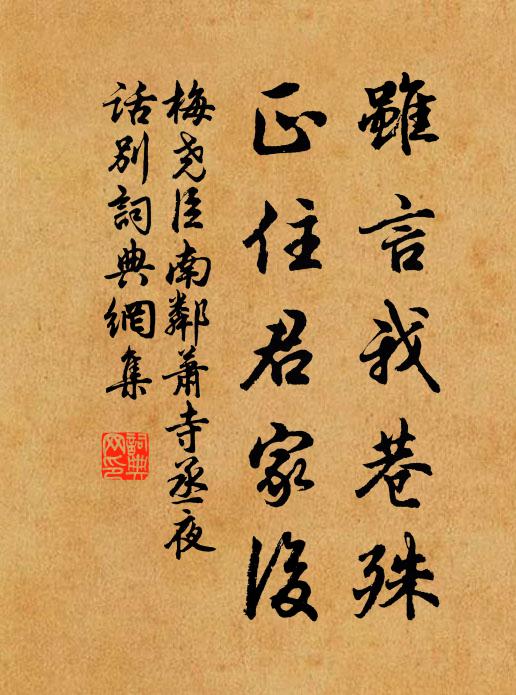 雖言我巷殊
正住君家後
梅尧臣南鄰蕭寺丞夜
话别詞典網集
詞典
网印